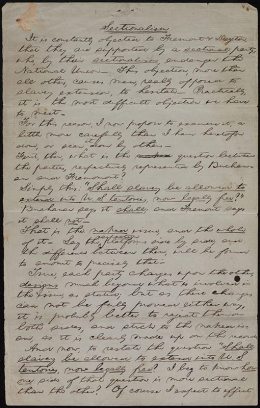 Sectionalism
It is constantly objected to Fremont & Dayton
that they are supported by a sectional party,
who by their sectionalism, endanger the
National Union. This objection, more than
all others, causes men, really opposed to
slavery extension, to hesitate. Practically,
it is the most difficult objection we have
to meet.
For this reason, I now propose to examine it, a
little more carefully than I have heretofore
done, or seen it done by others.
First, then, what is the question between
the parties, respectively represented by Buchanan
and Fremont?
Simply this: "Shall slavery be allowed to
extend into U. S. teritories, now legally free?"
Buchanan says it shall; and Fremont says
it shall not.
That is the naked issue, and the whole
of it. Lay the respective platforms side by side; and
the difference between them, will be found
to amount to precisely that.
True, each party charges upon the other,
designs much beyond what is involved in
the issue, as stated; but as these charges
can not be fully proved either way,
it is probably better to reject them on
both sides, and stick to the naked issue,
as it is clearly made up on the record.
And now, to restate the question "Shall
slavery be allowed to extend into U. S.
teritories, now legally free?" I beg to know how
one side of that question is more sectional
than the other? Of course I expect to effect